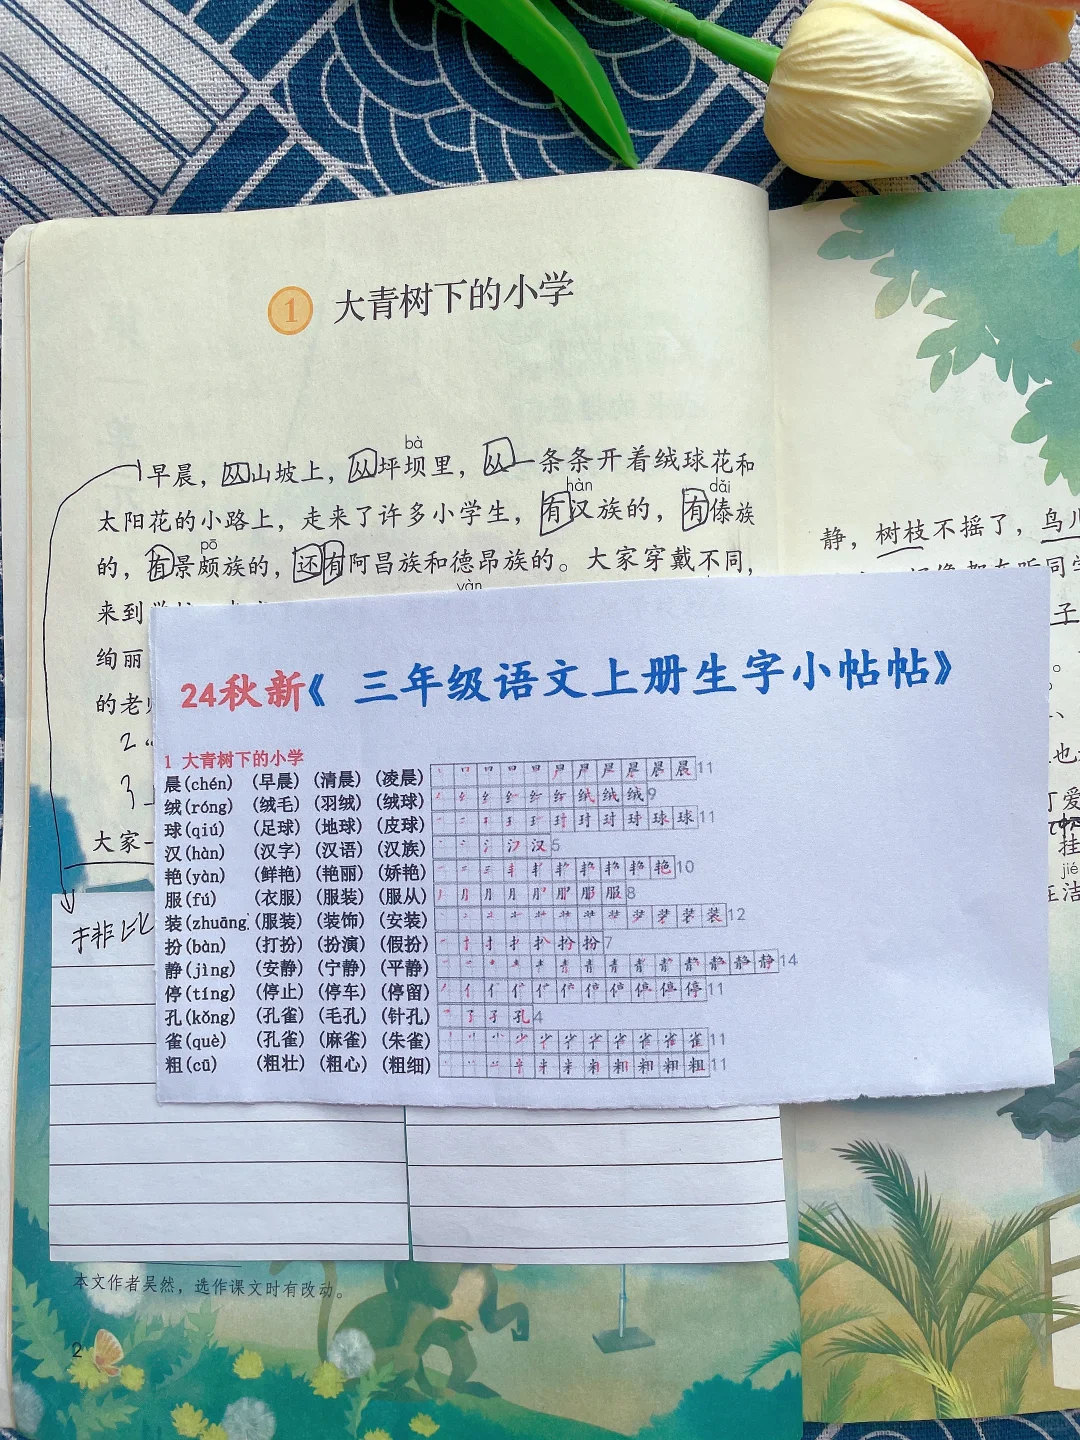 1 大青树下的小学
bà
早晨，从山坡上，从坪坝里，从一条条开着绒球花和
hàn dǎi
太阳花的小路上，走来了许多小学生，有汉族的，有傣族
pō
的，有景颇族的，还有阿昌族和德昂族的。大家穿戴不同，
yàn
来到
绚丽
的老师
2
3
大家一
排比
24秋新《三年级语文上册生字小帖帖》
1 大青树下的小学
晨(chén) (早晨) (清晨) (凌晨) 11
绒(róng) (绒毛) (羽绒) (绒球) 9
球(qiú) (足球) (地球) (皮球) 11
汉(hàn) (汉字) (汉语) (汉族) 5
艳(yàn) (鲜艳) (艳丽) (娇艳) 10
服(fú) (衣服) (服装) (服从) 8
装(zhuāng) (服装) (装饰) (安装) 12
扮(bàn) (打扮) (扮演) (假扮) 7
静(jìng) (安静) (宁静) (平静) 14
停(tíng) (停止) (停车) (停留) 11
孔(kǒng) (孔雀) (毛孔) (针孔) 4
雀(què) (孔雀) (麻雀) (朱雀) 11
粗(cū) (粗壮) (粗心) (粗细) 11
本文作者吴然，选作课文时有改动。
2
静，树枝不摇了，鸟儿
子
爱
挂
jié
洁